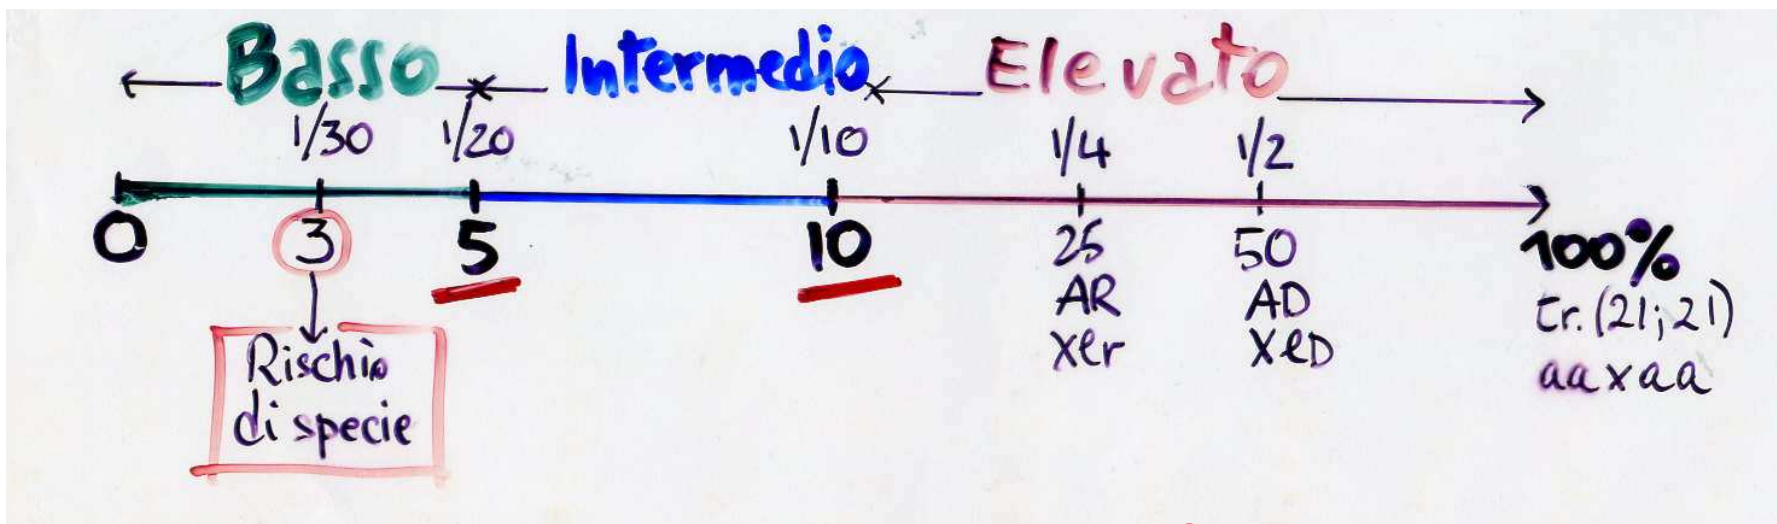 Basso Intermedio Elevato
1/30 1/20 1/10 1/4 1/2
0 3 5 10 25 50 100%
AR AD tr. (21;21)
Xer XeD aa x aa
Rischio
di specie